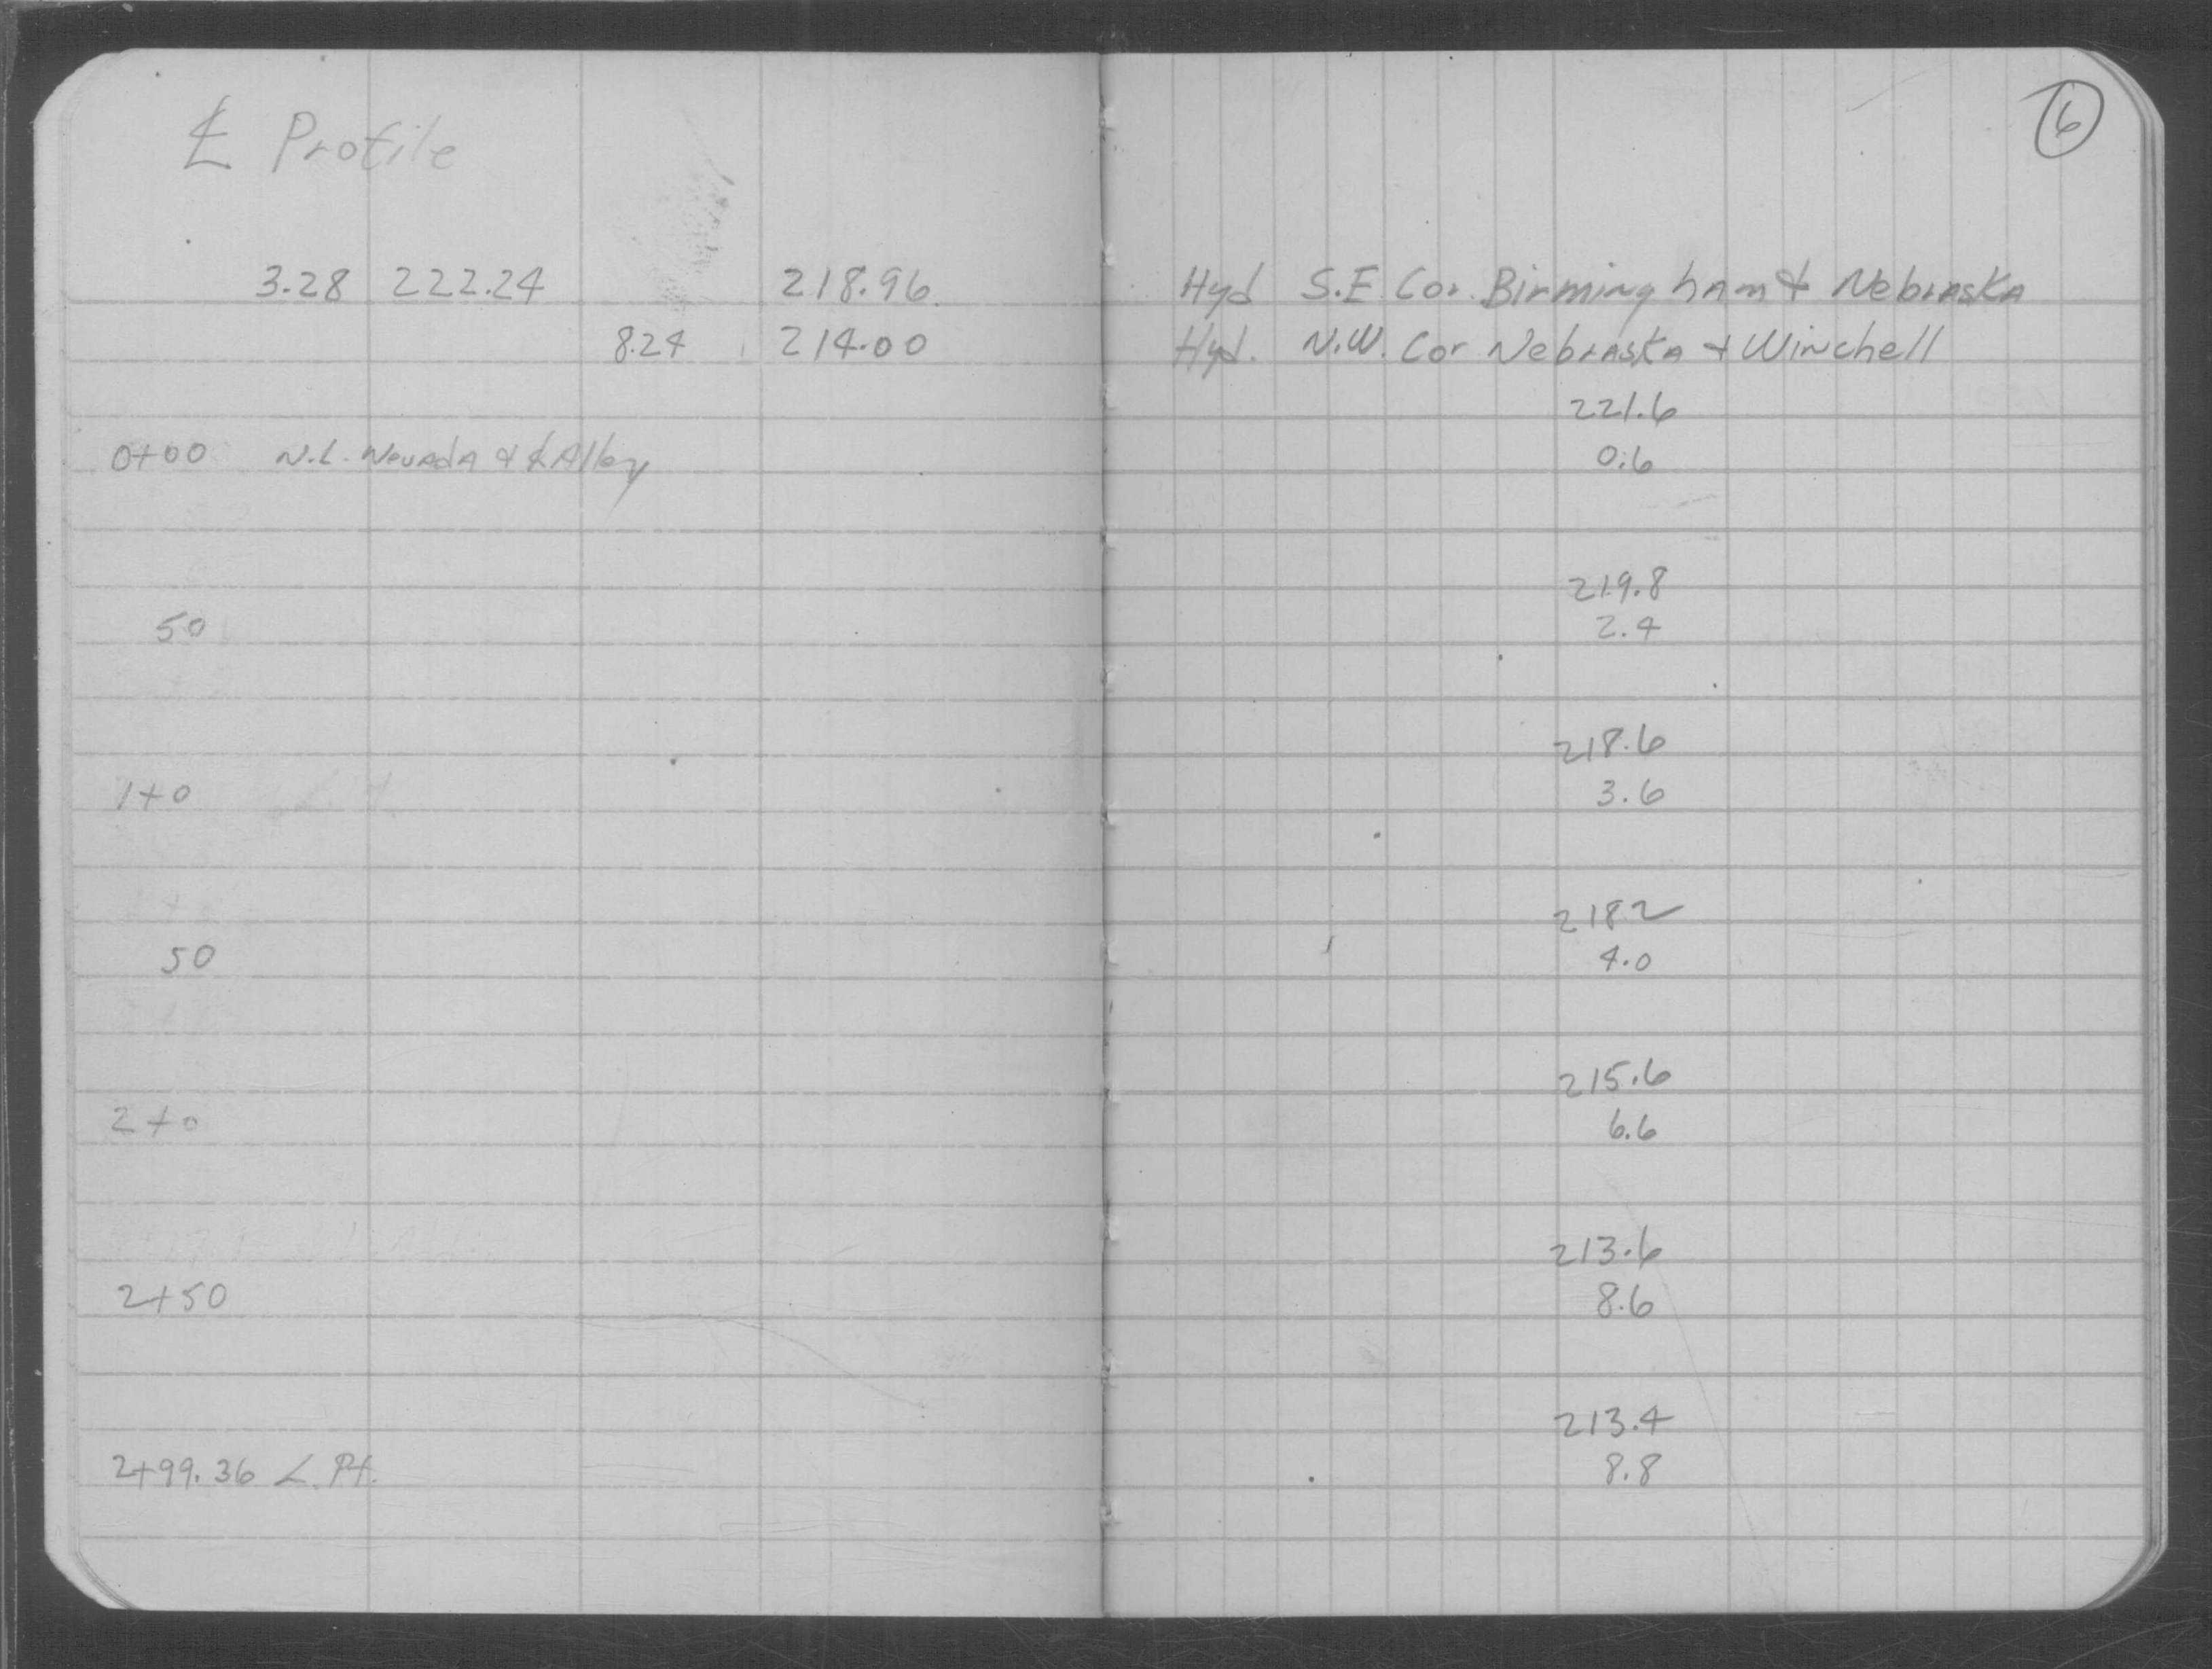 ℄ Profile
6
3.28 222.24 218.96 Hyd S.E. Cor. Birmingham & Nebraska
8.24 214.00 Hyd. N.W. Cor Nebraska & Winchell
221.6
0+00 N.L. Nevada & ℄ Alley 0.6
219.8
50 2.4
218.6
1+0 3.6
218.2
50 4.0
215.6
2+0 6.6
213.6
2+50 8.6
213.4
2+99.36 ∠ Pt. 8.8